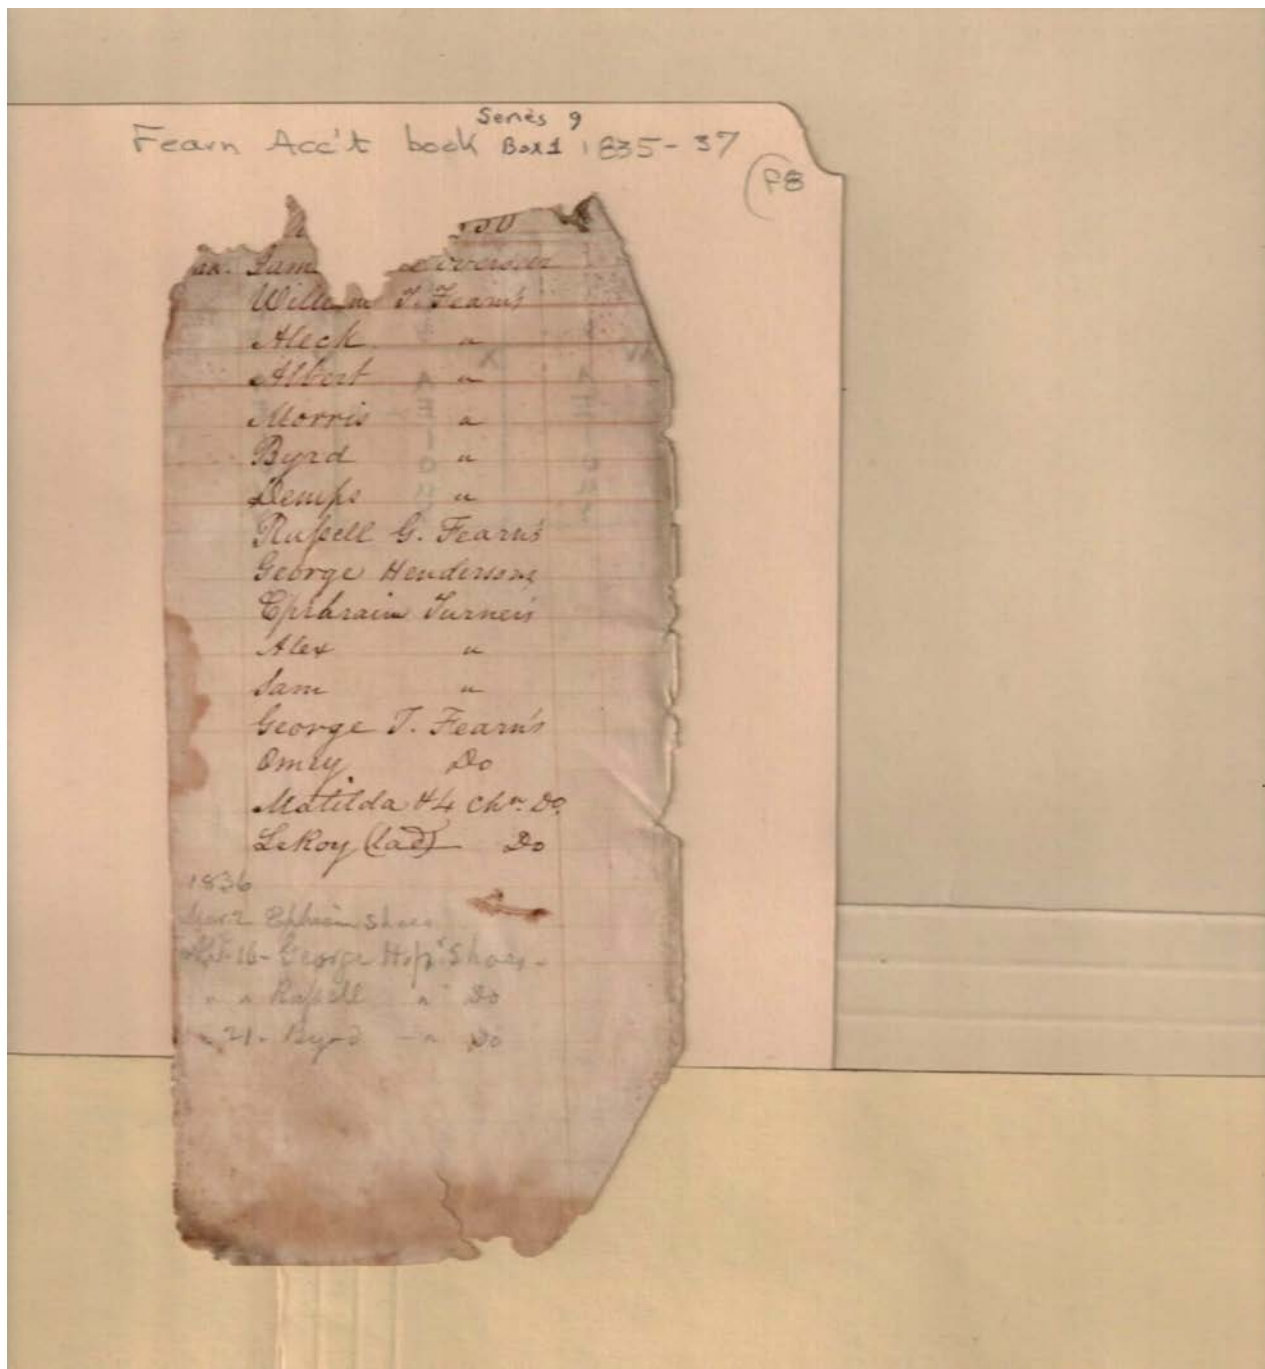 Series 9
Fearn Acc't book Box 1 1835-37
P8
an. Sam Overseer
William T. Fearn's
Aleck "
Albert "
Morris "
Byrd "
Demps "
Russell G. Fearn's
George Hendersons
Ephraim Turner's
Alex "
Sam "
George T. Fearn's
Omey Do
Matilda & 4 Chn. Do.
LeRoy (lad) Do
1836
Mar 2 Ephraim Shoes
16 - George Shoes -
" " Russell " Do
" 21 - Byrd - " Do